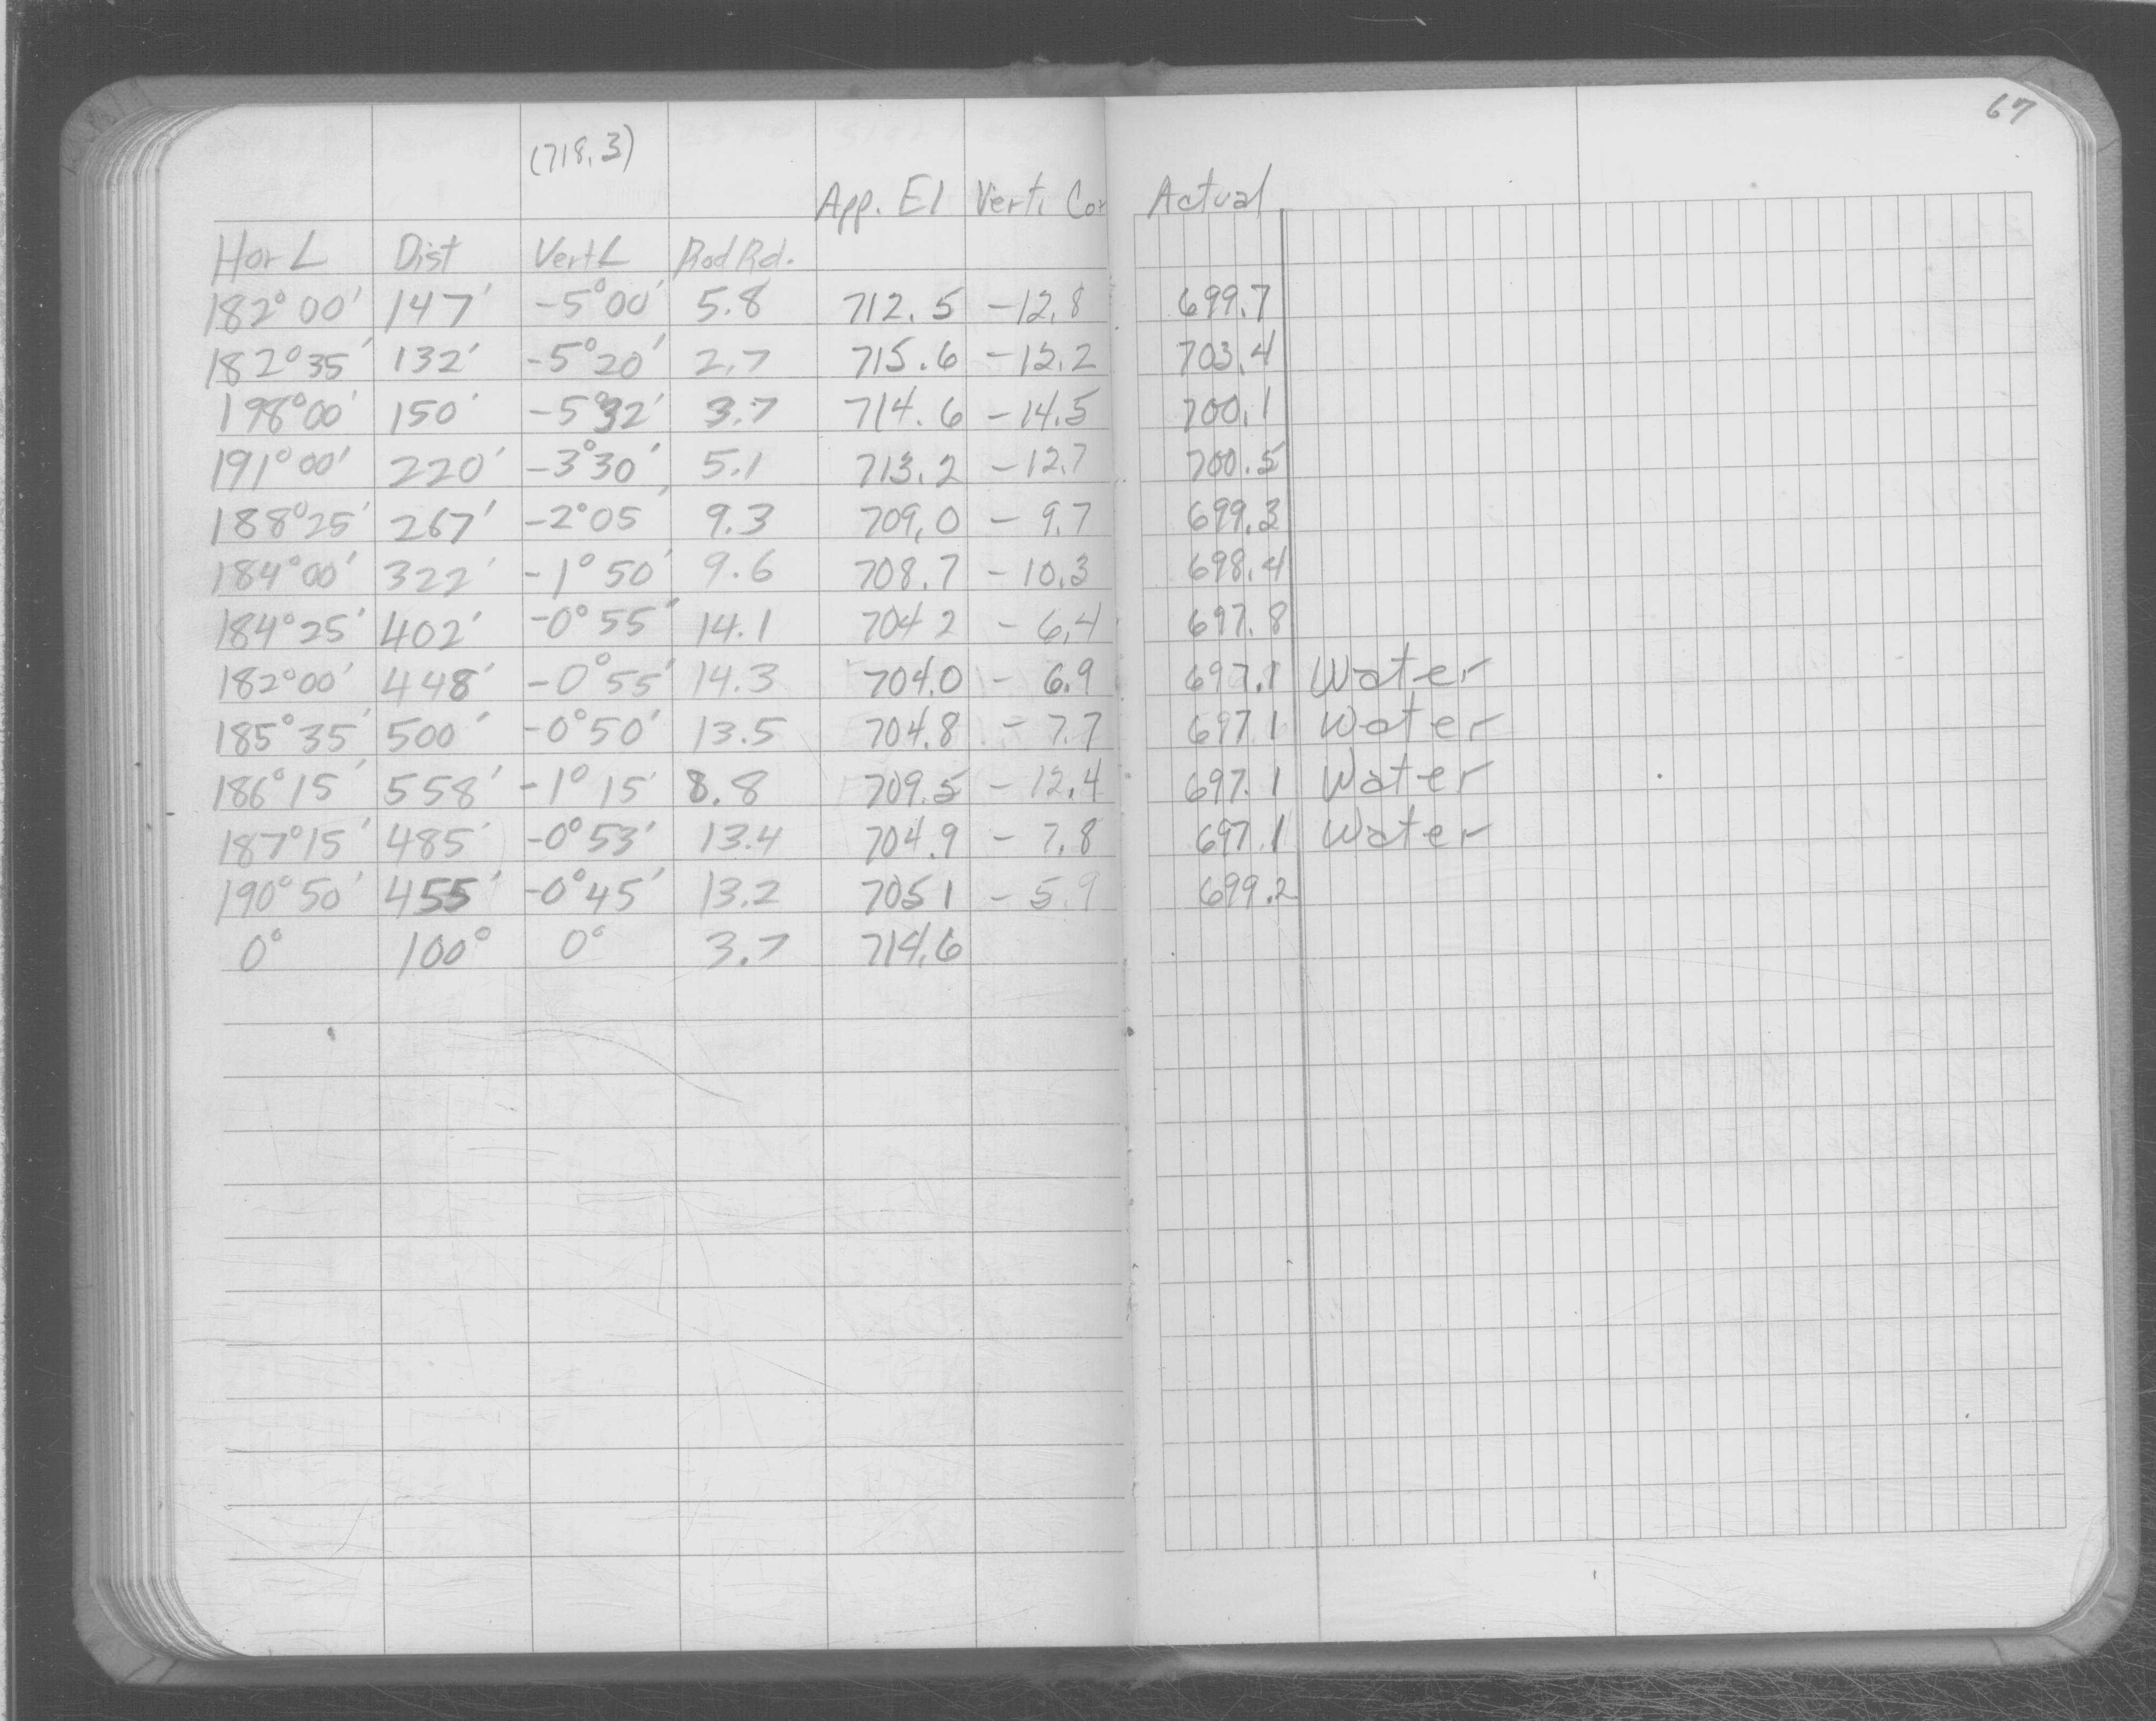 67
(718.3)
App. El Vert. Cor Actual
Hor ∠ Dist Vert ∠ Rod Rd.
182°00' 147' -5°00' 5.8 712.5 -12.8 699.7
182°35' 132' -5°20' 2.7 715.6 -12.2 703.4
198°00' 150' -5°32' 3.7 714.6 -14.5 700.1
191°00' 220' -3°30' 5.1 713.2 -12.7 700.5
188°25' 267' -2°05' 9.3 709.0 - 9.7 699.3
184°00' 322' -1°50' 9.6 708.7 - 10.3 698.4
184°25' 402' -0°55' 14.1 704 2 - 6.4 697.8
182°00' 448' -0°55' 14.3 704.0 - 6.9 697.1 Water
185°35' 500' -0°50' 13.5 704.8 - 7.7 697.1 Water
186°15' 558' -1°15' 8.8 709.5 - 12.4 697.1 Water
187°15' 485' -0°53' 13.4 704.9 - 7.8 697.1 Water
190°50' 455' -0°45' 13.2 705 1 - 5.9 699.2
0° 100° 0° 3.7 714.6